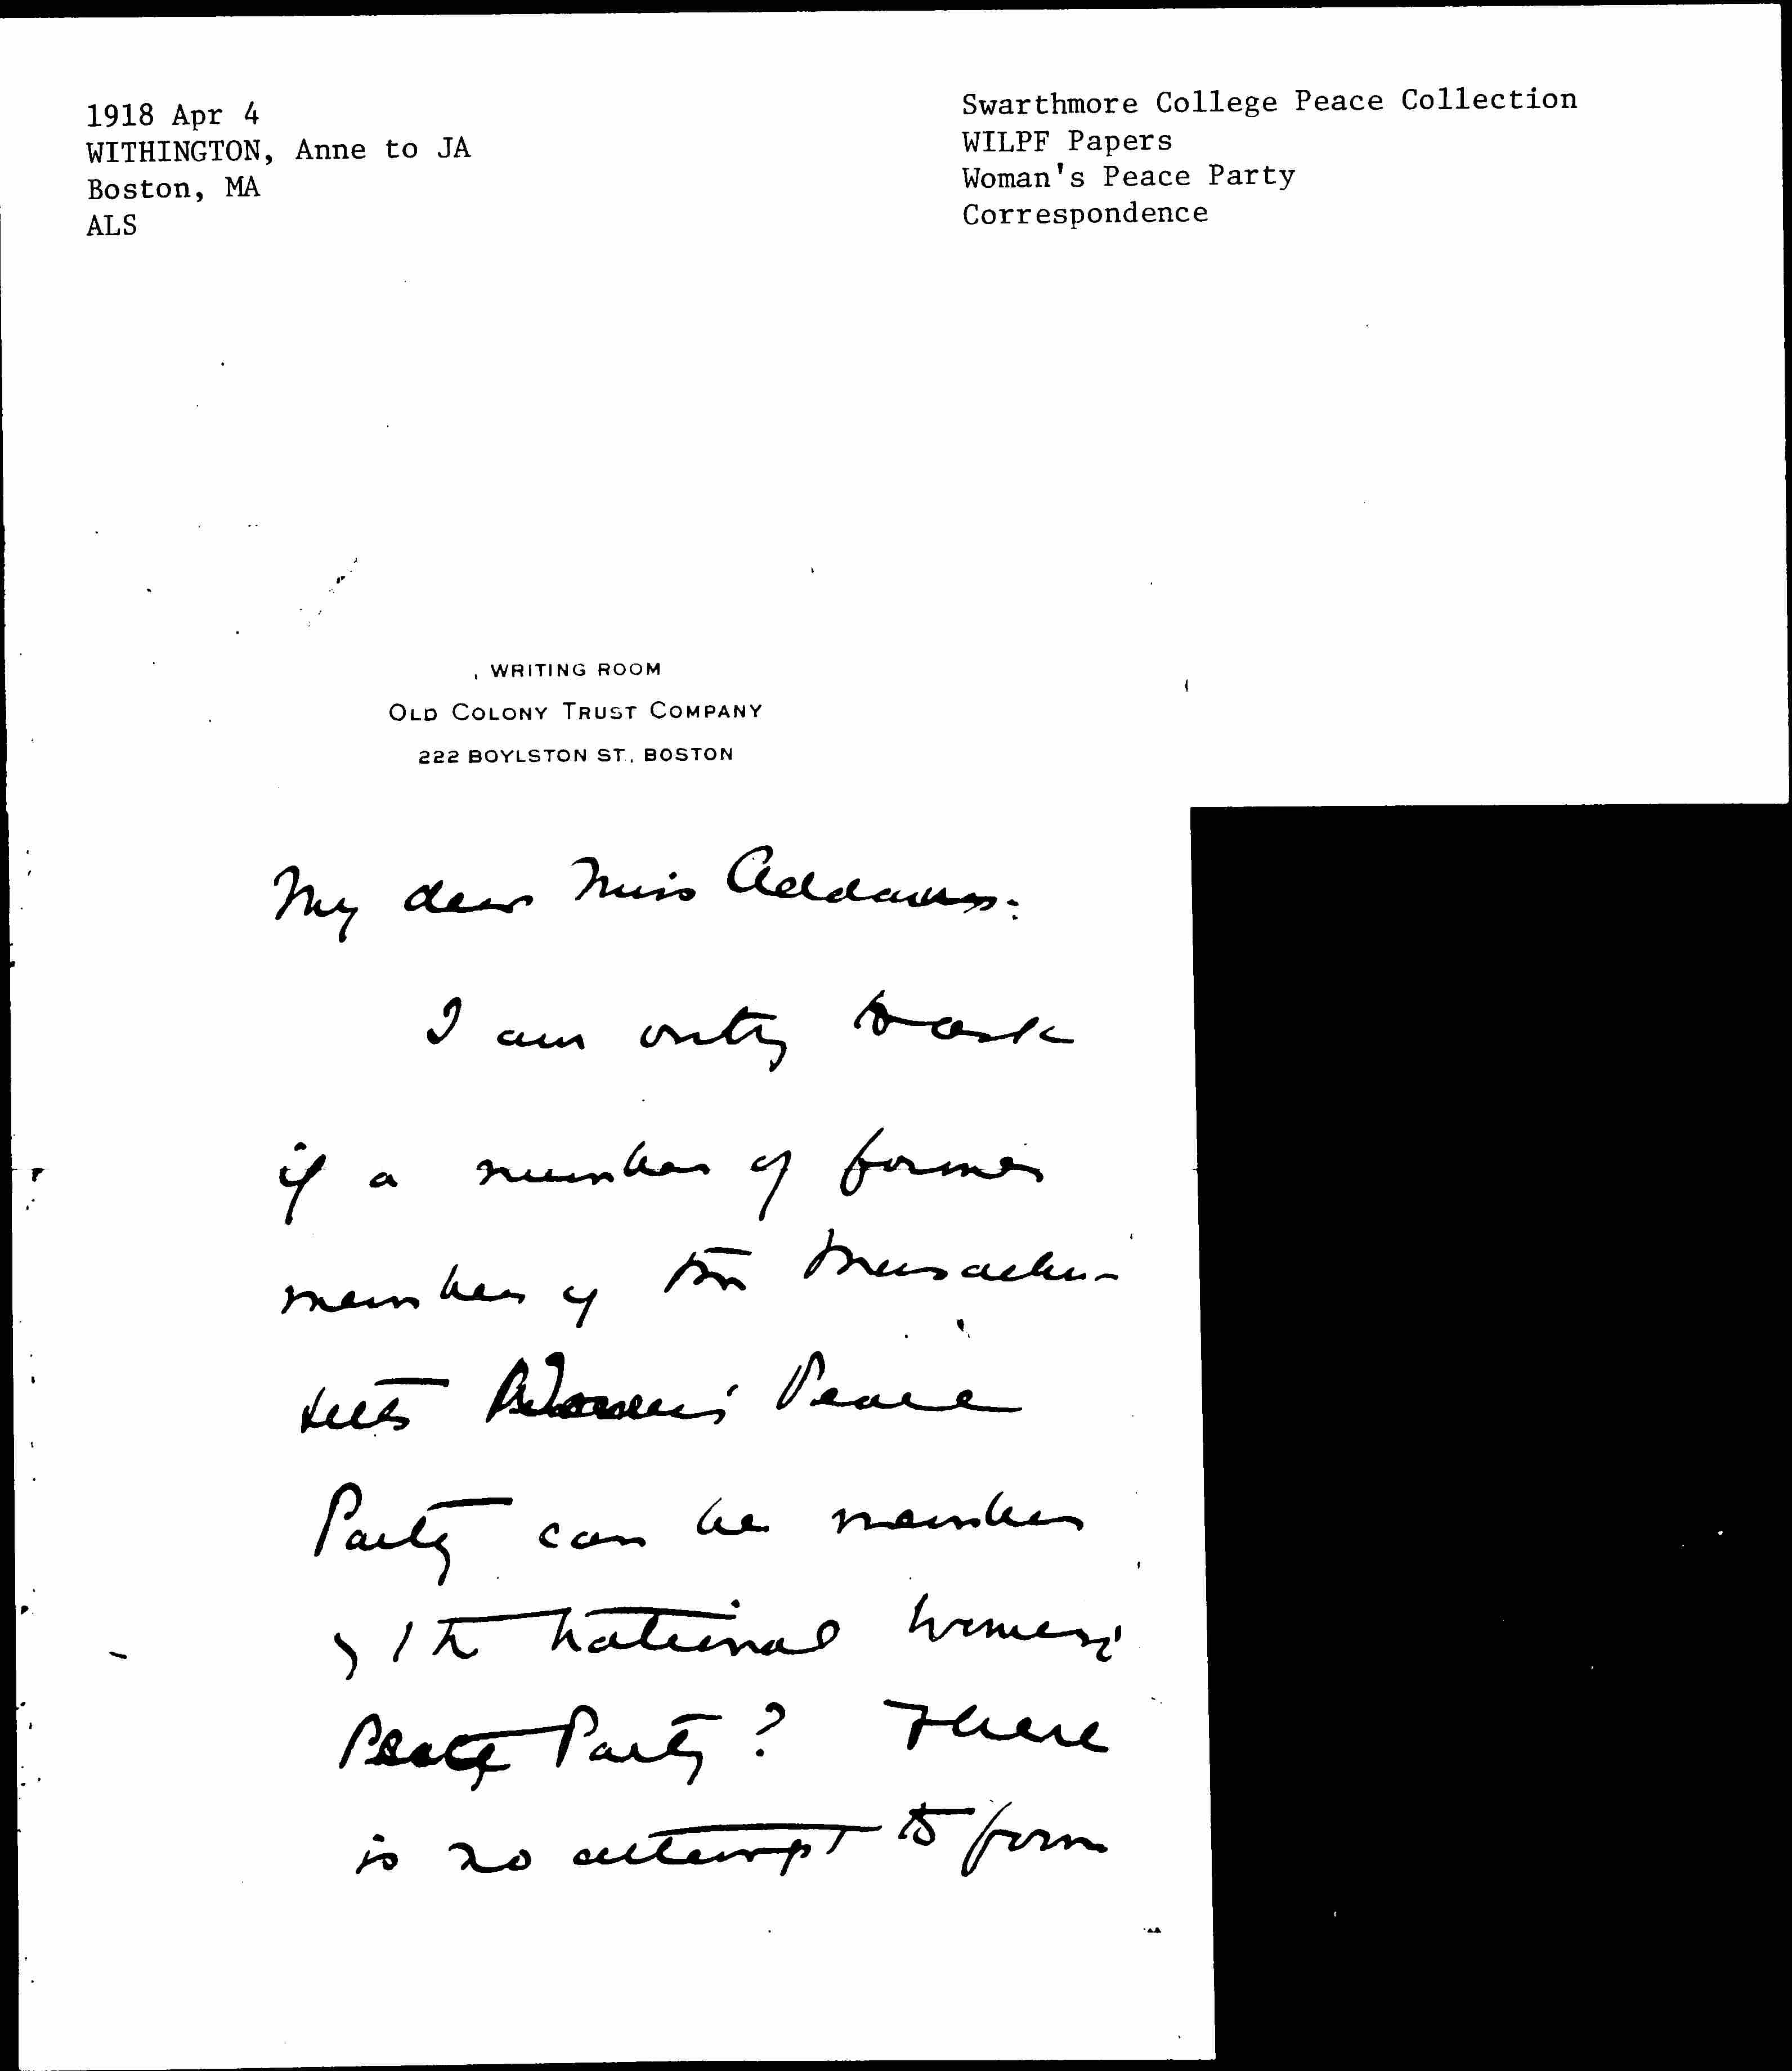 1918 Apr 4
WITHINGTON, Anne to JA
Boston, MA
ALS
Swarthmore College Peace Collection
WILPF Papers
Woman's Peace Party
Correspondence
WRITING ROOM
OLD COLONY TRUST COMPANY
222 BOYLSTON ST., BOSTON
My dear Miss Addams:
I am to ask
if a number of former
members of the Massachu-
setts Women's Peace
Party can be members
of the National Women's
Peace Party? There
is no attempt to form